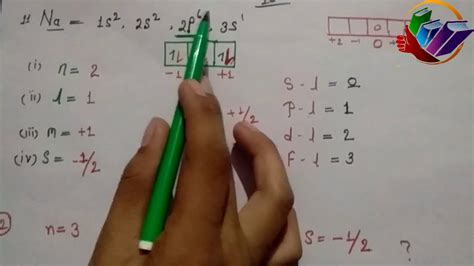 1) Na = 1s², 2s², 2p⁶, 3s¹
-1 +1
+2 -1 0 +1
(i) n = 2
(ii) l = 1
(iii) m = +1
(iv) S = -1/2
+1/2
S - l = 0
P - l = 1
d - l = 2
F - l = 3
2
n = 3
S = -1/2 ?